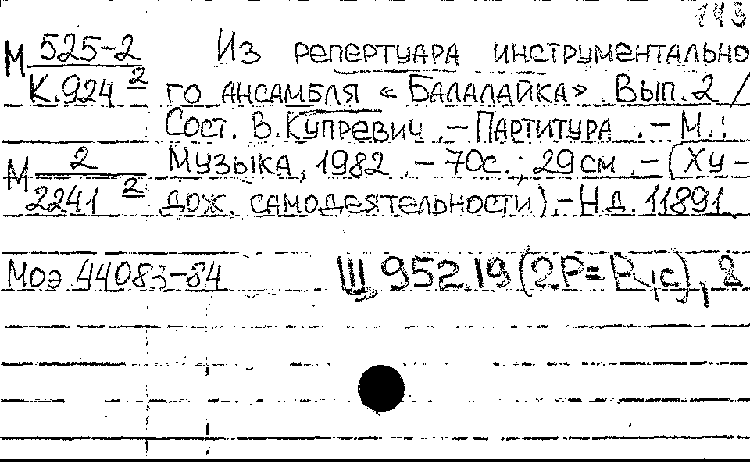 143
М 525-2 Из репертуара инструментально
К.924 2 го ансамбля «Балалайка». Вып. 2 /
Сост. В. Купревич. – Партитура. – М.:
М 2 Музыка, 1982. – 70с.; 29см. – (Ху-
2241 2 дож. самодеятельности). – Н.д. 11891
Моэ 44083-84 Щ 952.19 (2Р=Р,с), 2